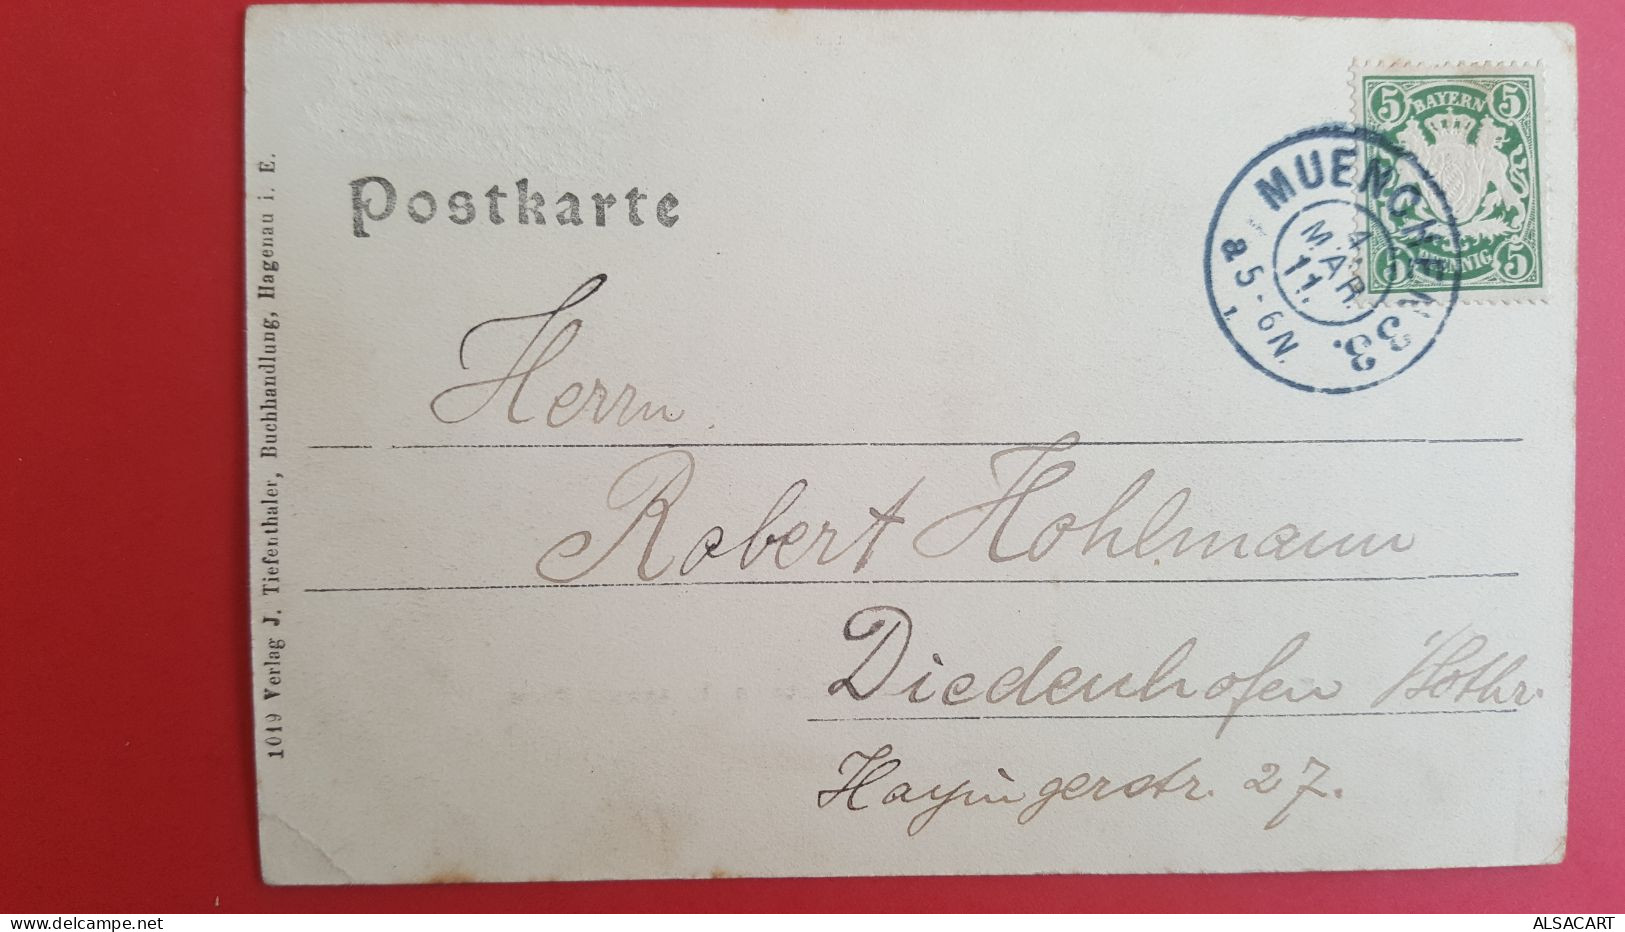 Postkarte
5 BAYERN 5
5 PFENNIG 5
MUENCHEN 33.
4
MAR.
11.
a 5-6N.
1.
1019 Verlag J. Tiefenthaler, Buchhandlung, Hagenau i. E.
Herrn
Robert Hohlmann
Diedenhofen Lothr.
Hayingerstr. 27.
ALSACART